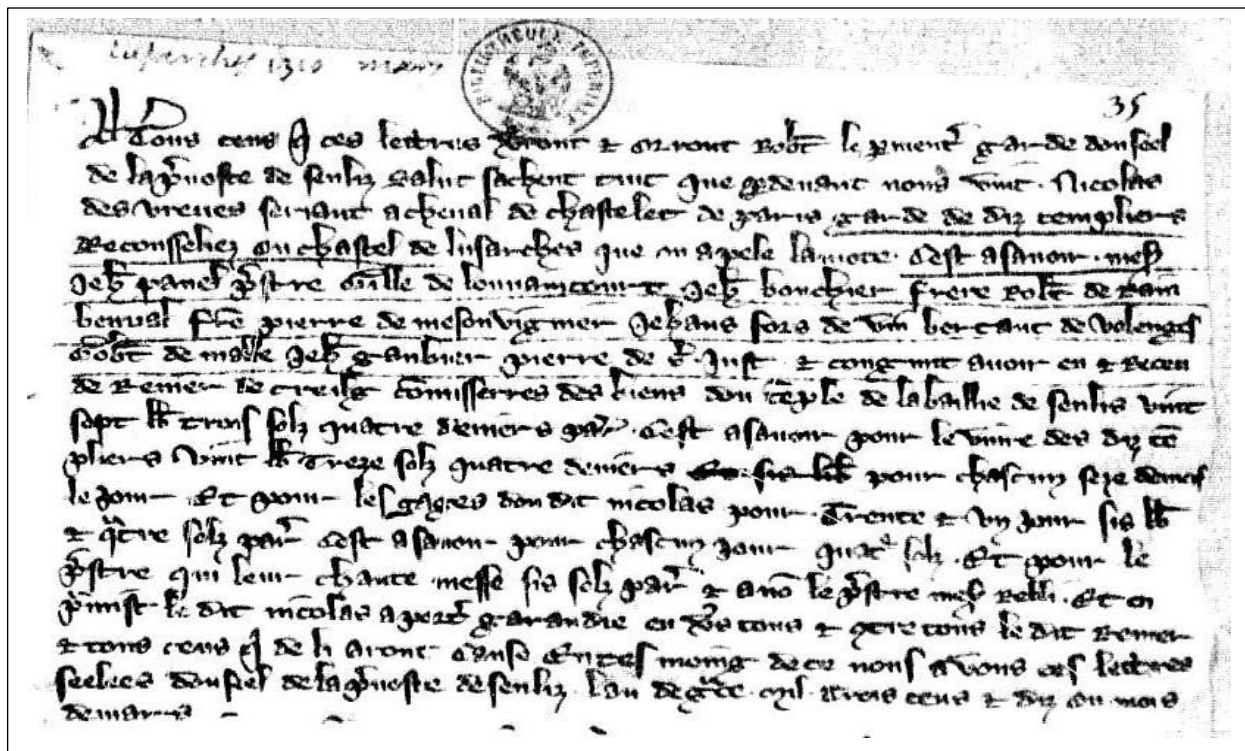 Lusarches 1310 mars
BIBLIOTHEQUE IMPERIALE
35
A Tous ceus q ces lettres v'ront & orront Rob't le p'menter garde dou seel
de la p'voste de senliz Salut sachent tuit que p devant nous vint Nicolas
des vreues seriant a cheval de chastelet de paris garde de diz templiers
Reconsseliez ou chastel de lusarches que on apele la mote Cest asavoir mes
Jeh panel p'stre Gille de louvaincourt Jeh bouchier frere Rob't de Ram
benval fre pierre de mesonvigmer Jehans fors de vin bertaut de volenges
Gob't de malle Jeh gaubier pierre de s. Just & congnut avoir eu & Receu
de Renier de creilg comisseres des biens dou te'ple de la baillie de senlis vint
sept lb trois solz quatre deniers par' Cest asavoir pour le vivre des diz te'
pliers vint lb treze solz quatre deniers pour chascun seze deniers
le jour Et pour les gages dou dit nicolas pour Trente & un jour sis lb
& q'tre solz par' Cest asavoir pour chascun jour quat' solz Et pour le
p'stre qui leur chante messe sis solz par' & a no' le p'stre mes Relli Et en
p'mist le dit nicolas a port' garandie en v's tous & q'tre tous le dit Renier
& tous ceus q de li aront cause En tesmoing de ce nous avons ces lettres
seelees dou seel de la p'voste de senliz lan de g'ce mil trois cens & diz ou mois
de mars